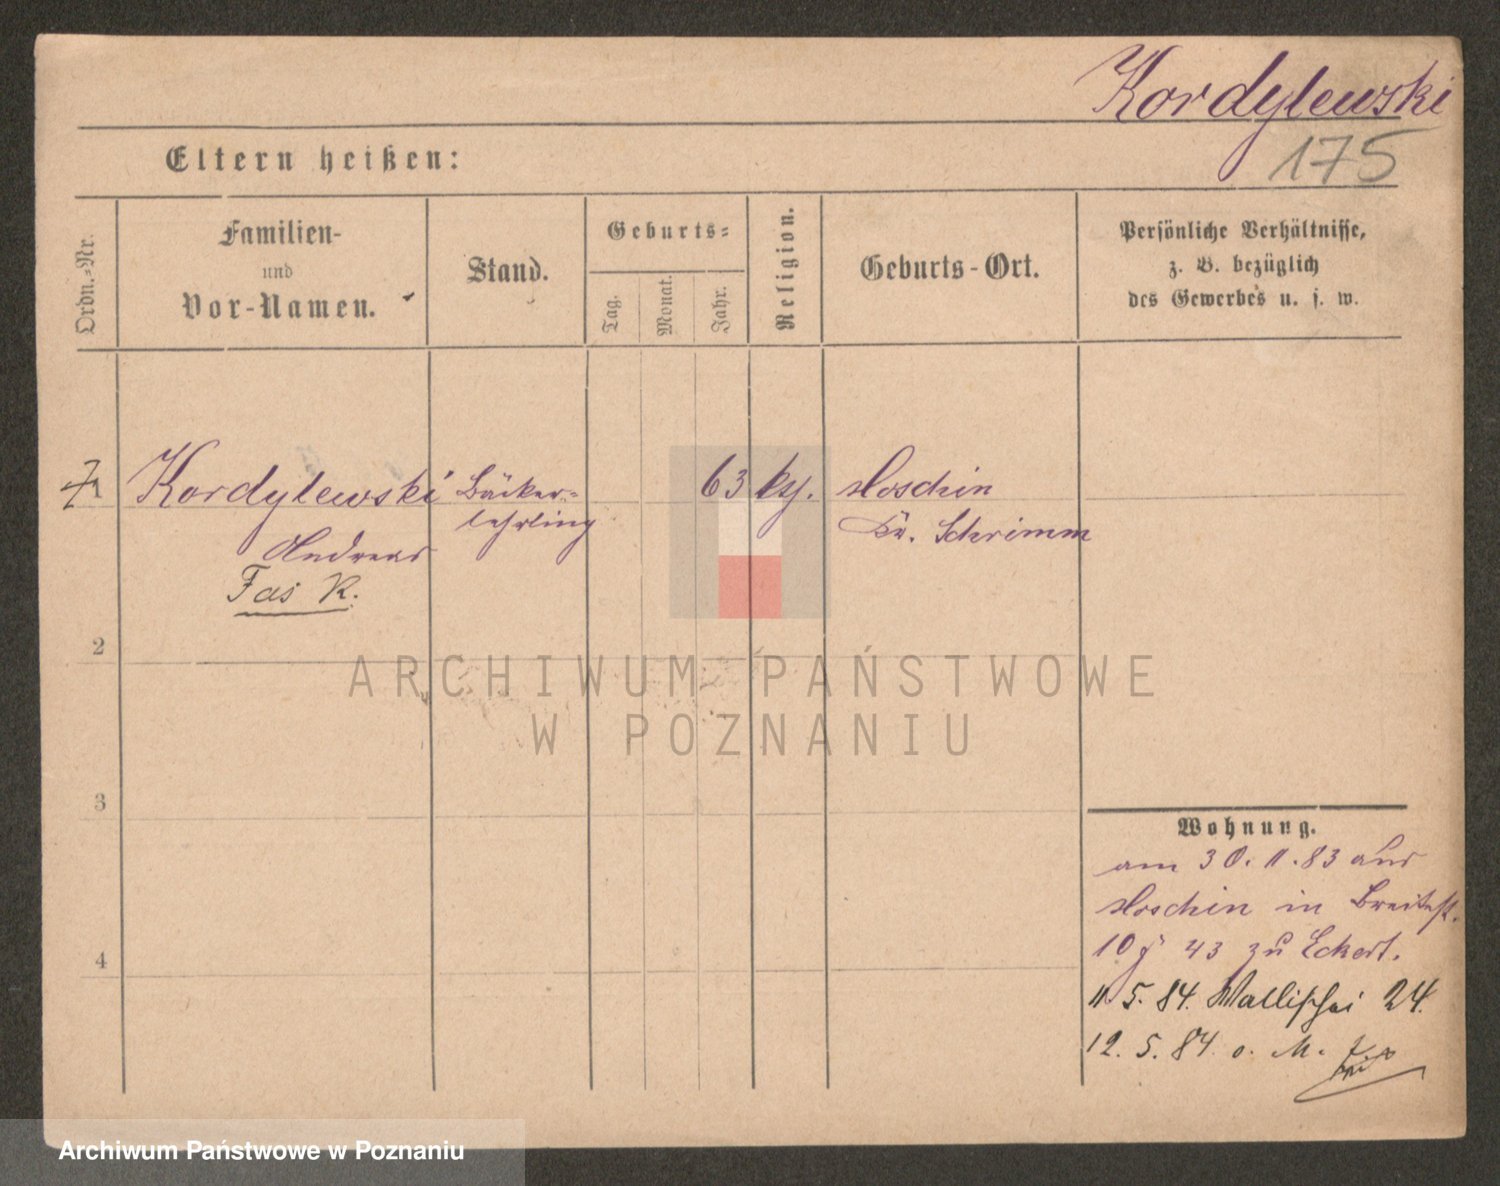 Kordylewski
175
Eltern heißen:
Ordn.-Nr.
Familien-
und
Vor-Namen.
Stand.
Geburts-
Tag.
Monat.
Jahr.
Religion.
Geburts-Ort.
Persönliche Verhältnisse,
z. B. bezüglich
des Gewerbes u. s. w.
1
Kordylewski
Andreas
Bäcker-
lehrling
63
kt.
Moschin
Kr. Schrimm
2
3
4
Wohnung.
am 30.11.83 aus
Moschin in Breitest.
10 43 zu Eckert.
11.5.84. Wallischei 24.
12.5.84. o. M.
ARCHIWUM PAŃSTWOWE
W POZNANIU
Archiwum Państwowe w Poznaniu